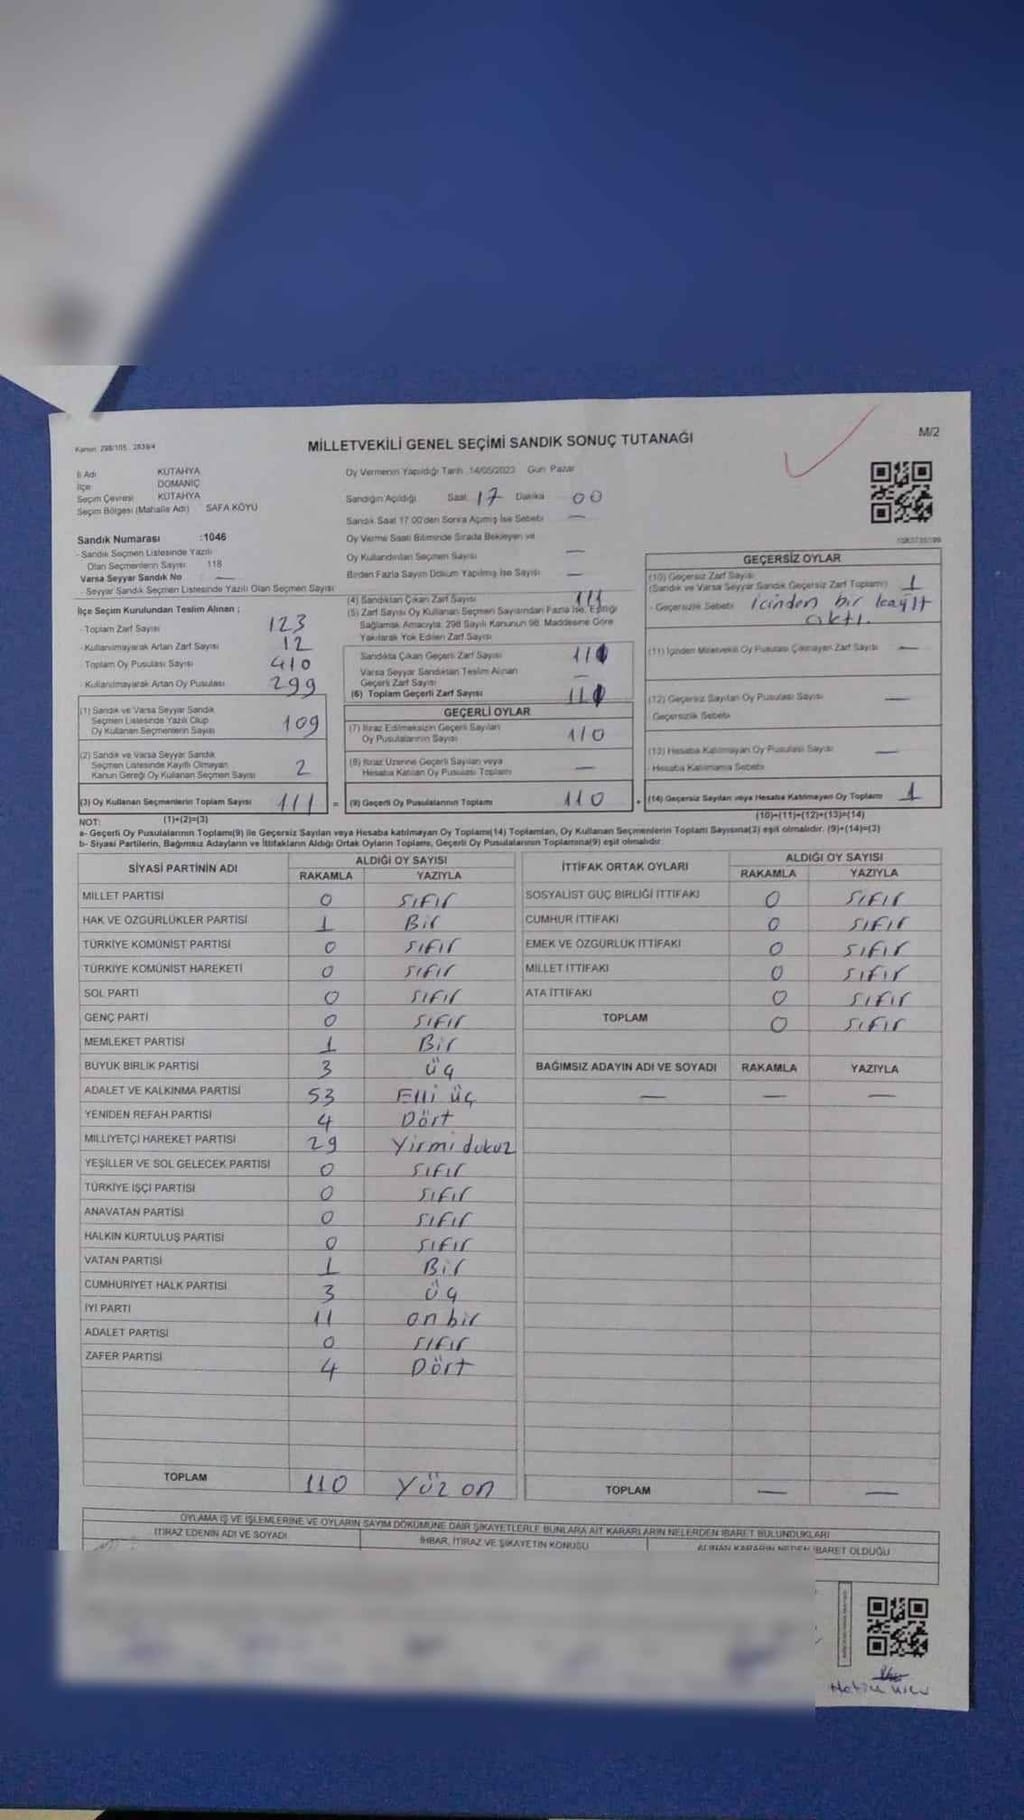 Kanun: 298/105, 2839/4
MİLLETVEKİLİ GENEL SEÇİMİ SANDIK SONUÇ TUTANAĞI
M/2
İl Adı KÜTAHYA
İlçe DOMANİÇ
Seçim Çevresi KÜTAHYA
Seçim Bölgesi (Mahalle Adı) SAFA KÖYÜ
Sandık Numarası :1046
- Sandık Seçmen Listesinde Yazılı
Olan Seçmenlerin Sayısı 118
Varsa Seyyar Sandık No —
- Seyyar Sandık Seçmen Listesinde Yazılı Olan Seçmen Sayısı
İlçe Seçim Kurulundan Teslim Alınan ;
- Toplam Zarf Sayısı 123
- Kullanılmayarak Artan Zarf Sayısı 12
- Toplam Oy Pusulası Sayısı 410
- Kullanılmayarak Artan Oy Pusulası 299
(1) Sandık ve Varsa Seyyar Sandık
Seçmen Listesinde Yazılı Olup
Oy Kullanan Seçmenlerin Sayısı 109
(2) Sandık ve Varsa Seyyar Sandık
Seçmen Listesinde Kayıtlı Olmayan
Kanun Gereği Oy Kullanan Seçmen Sayısı 2
(3) Oy Kullanan Seçmenlerin Toplam Sayısı 111 =
Oy Vermenin Yapıldığı Tarih :14/05/2023 Gün Pazar
Sandığın Açıldığı Saat 17 Dakika 00
Sandık Saat 17.00'den Sonra Açılmış İse Sebebi —
Oy Verme Saati Bitiminde Sırada Bekleyen ve
Oy Kullandırılan Seçmen Sayısı —
Birden Fazla Sayım Döküm Yapılmış İse Sayısı —
(4) Sandıktan Çıkan Zarf Sayısı 111
(5) Zarf Sayısı Oy Kullanan Seçmen Sayısından Fazla İse, Eşitliği
Sağlamak Amacıyla, 298 Sayılı Kanunun 98. Maddesine Göre
Yakılarak Yok Edilen Zarf Sayısı
Sandıkta Çıkan Geçerli Zarf Sayısı 110
Varsa Seyyar Sandıktan Teslim Alınan
Geçerli Zarf Sayısı
(6) Toplam Geçerli Zarf Sayısı 110
GEÇERLİ OYLAR
(7) İtiraz Edilmeksizin Geçerli Sayılan
Oy Pusulalarının Sayısı 110
(8) İtiraz Üzerine Geçerli Sayılan veya
Hesaba Katılan Oy Pusulası Toplamı —
(9) Geçerli Oy Pusulalarının Toplamı 110 +
GEÇERSİZ OYLAR
(10) Geçersiz Zarf Sayısı
(Sandık ve Varsa Seyyar Sandık Geçersiz Zarf Toplamı) 1
- Geçersizlik Sebebi içinden bir kağıt
(11) İçinden Milletvekili Oy Pusulası Çıkmayan Zarf Sayısı —
(12) Geçersiz Sayılan Oy Pusulası Sayısı —
Geçersizlik Sebebi
(13) Hesaba Katılmayan Oy Pusulası Sayısı —
- Hesaba Katılmama Sebebi
(14) Geçersiz Sayılan veya Hesaba Katılmayan Oy Toplamı 1
NOT: (1)+(2)=(3)
(10)+(11)+(12)+(13)=(14)
a- Geçerli Oy Pusulalarının Toplamı(9) ile Geçersiz Sayılan veya Hesaba katılmayan Oy Toplamı(14) Toplamları, Oy Kullanan Seçmenlerin Toplam Sayısına(3) eşit olmalıdır. (9)+(14)=(3)
b- Siyasi Partilerin, Bağımsız Adayların ve İttifakların Aldığı Ortak Oyların Toplamı, Geçerli Oy Pusulalarının Toplamına(9) eşit olmalıdır.
SİYASİ PARTİNİN ADI ALDIĞI OY SAYISI
RAKAMLA YAZIYLA
MİLLET PARTİSİ 0 SIFIR
HAK VE ÖZGÜRLÜKLER PARTİSİ 1 Bir
TÜRKİYE KOMÜNİST PARTİSİ 0 SIFIR
TÜRKİYE KOMÜNİST HAREKETİ 0 SIFIR
SOL PARTİ 0 SIFIR
GENÇ PARTİ 0 SIFIR
MEMLEKET PARTİSİ 1 Bir
BÜYÜK BİRLİK PARTİSİ 3 üç
ADALET VE KALKINMA PARTİSİ 53 Elli üç
YENİDEN REFAH PARTİSİ 4 Dört
MİLLİYETÇİ HAREKET PARTİSİ 29 Yirmi dokuz
YEŞİLLER VE SOL GELECEK PARTİSİ 0 SIFIR
TÜRKİYE İŞÇİ PARTİSİ 0 SIFIR
ANAVATAN PARTİSİ 0 SIFIR
HALKIN KURTULUŞ PARTİSİ 0 SIFIR
VATAN PARTİSİ 1 Bir
CUMHURİYET HALK PARTİSİ 3 üç
İYİ PARTİ 11 on bir
ADALET PARTİSİ 0 SIFIR
ZAFER PARTİSİ 4 Dört
TOPLAM 110 Yüz on
İTTİFAK ORTAK OYLARI ALDIĞI OY SAYISI
RAKAMLA YAZIYLA
SOSYALİST GÜÇ BİRLİĞİ İTTİFAKI 0 SIFIR
CUMHUR İTTİFAKI 0 SIFIR
EMEK VE ÖZGÜRLÜK İTTİFAKI 0 SIFIR
MİLLET İTTİFAKI 0 SIFIR
ATA İTTİFAKI 0 SIFIR
TOPLAM 0 SIFIR
BAĞIMSIZ ADAYIN ADI VE SOYADI RAKAMLA YAZIYLA
— — —
TOPLAM — —
OYLAMA İŞ VE İŞLEMLERİNE VE OYLARIN SAYIM DÖKÜMÜNE DAİR ŞİKAYETLERLE BUNLARA AİT KARARLARIN NELERDEN İBARET BULUNDUKLARI
İTİRAZ EDENİN ADI VE SOYADI İHBAR, İTİRAZ VE ŞİKAYETİN KONUSU ALINAN KARARIN NEDEN İBARET OLDUĞU